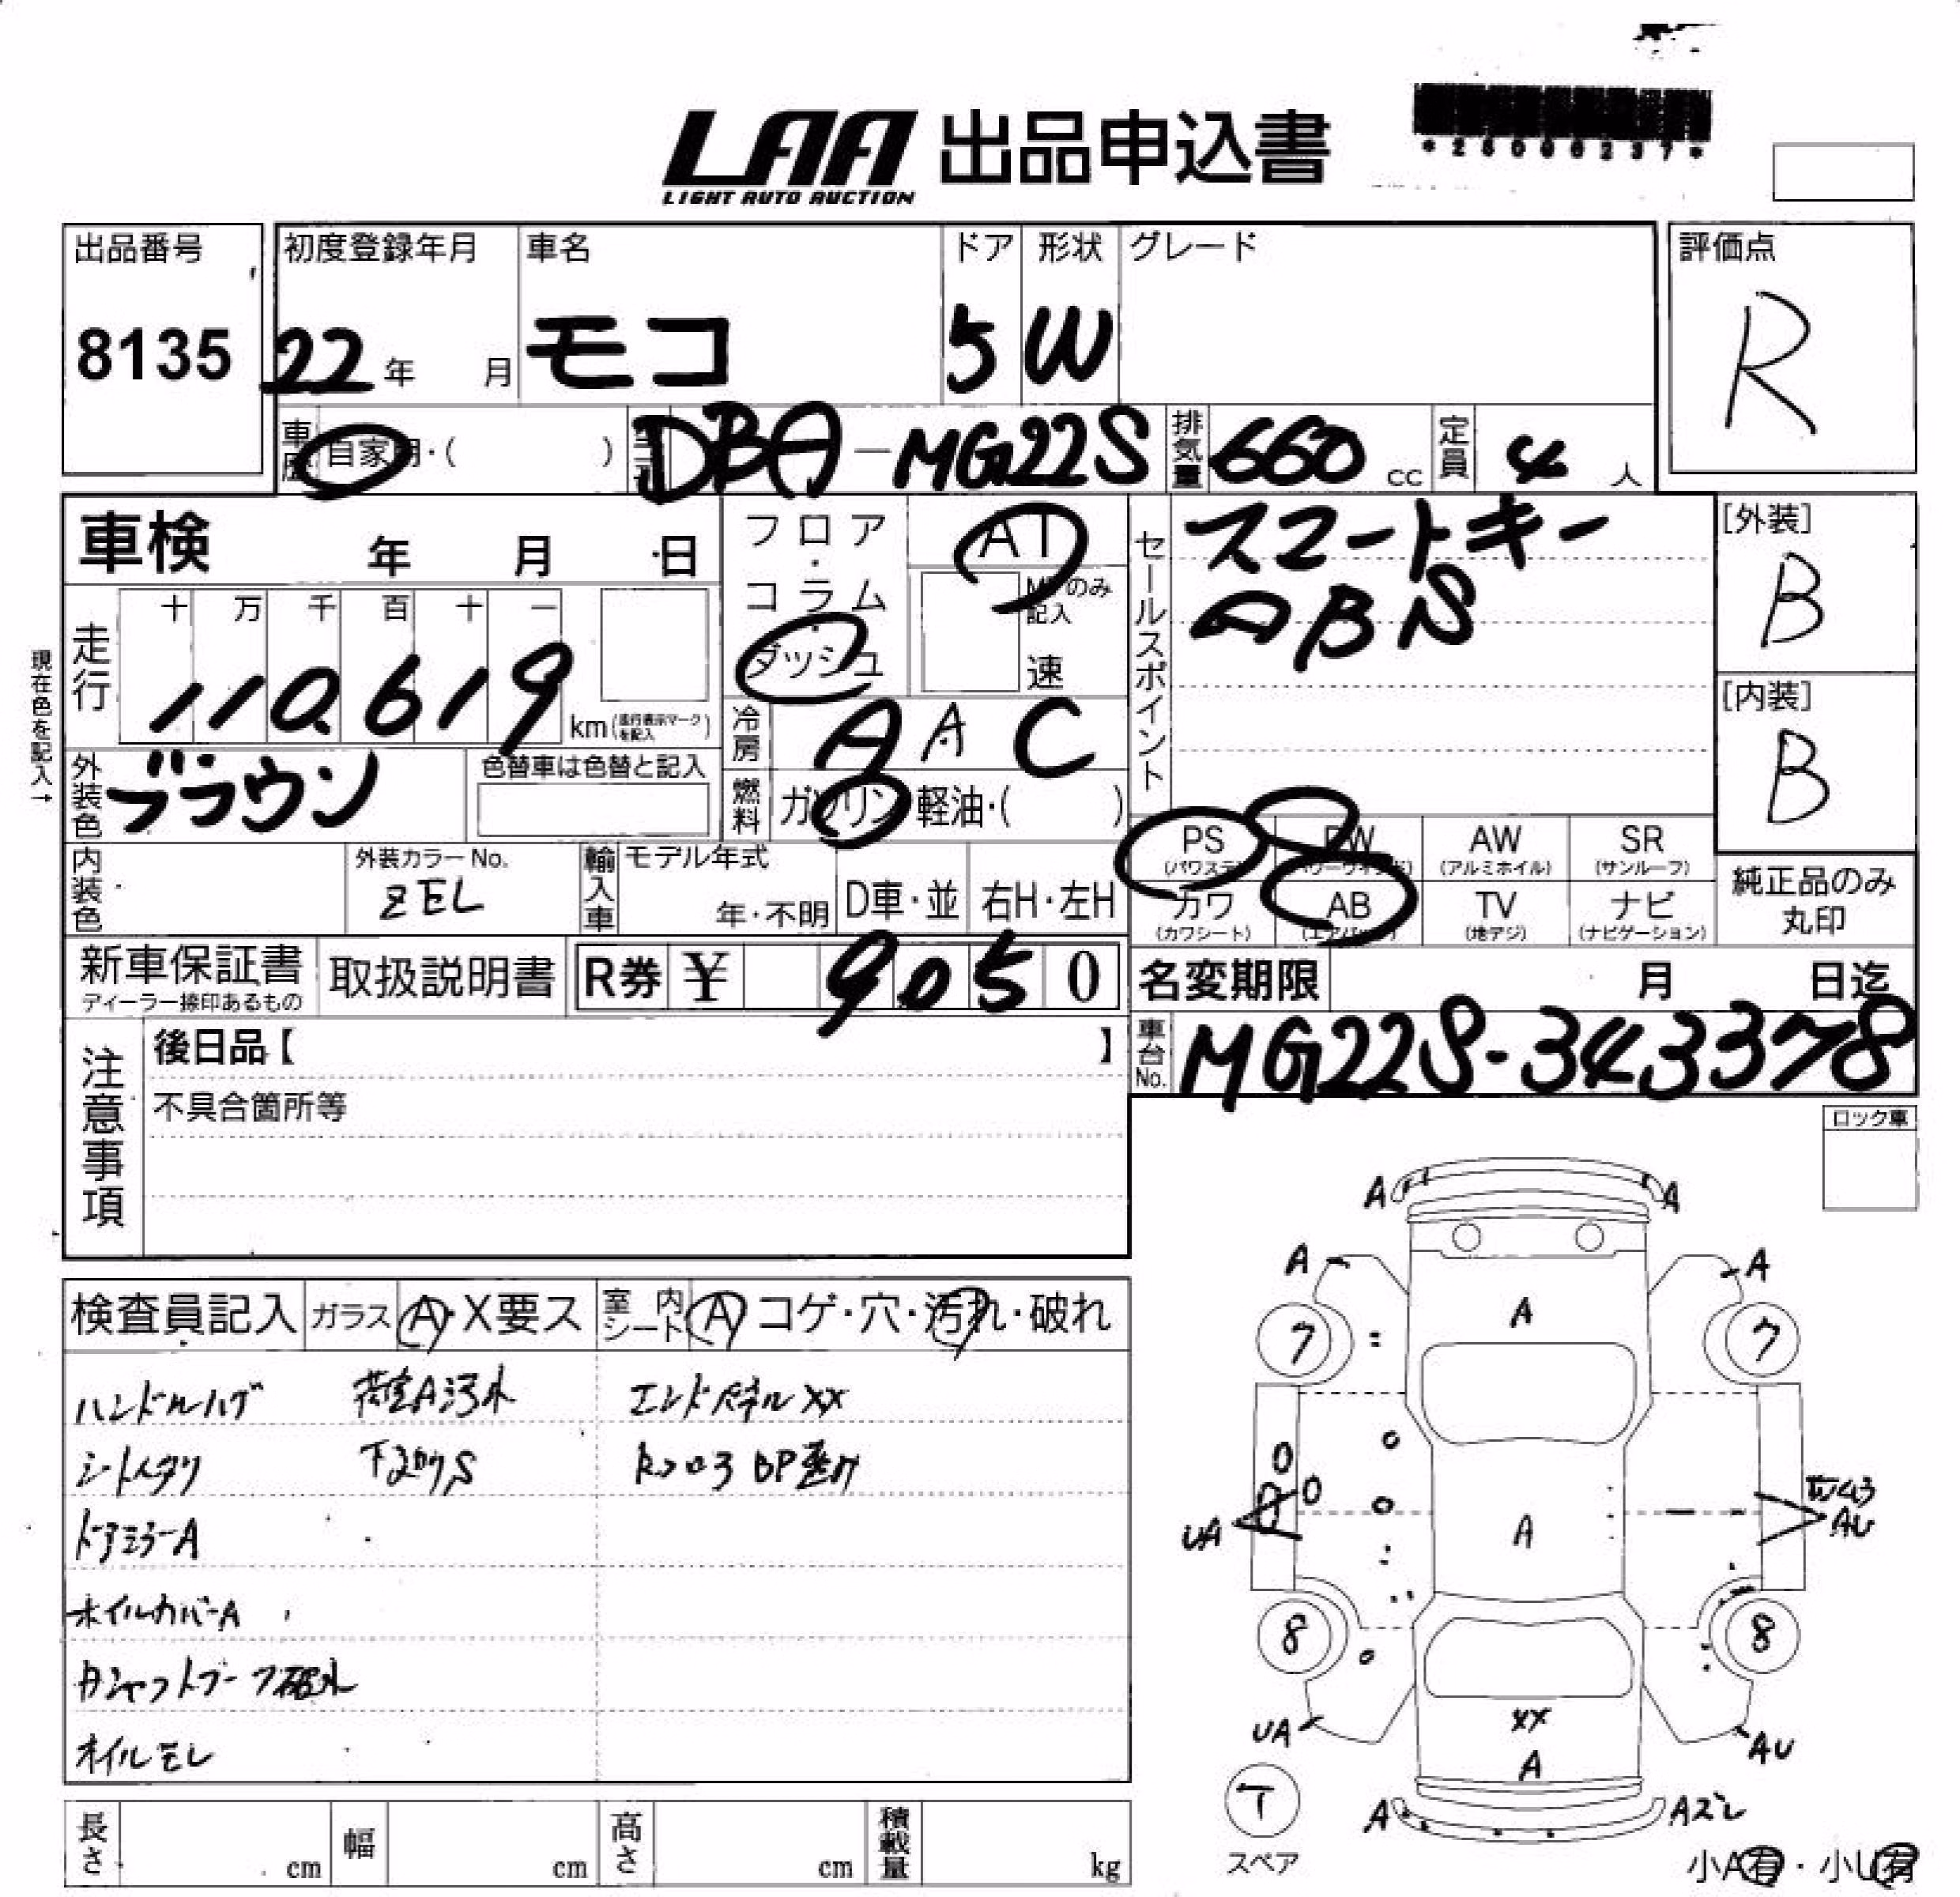 LAA 出品申込書
LIGHT AUTO AUCTION
出品番号 初度登録年月 車名 ドア 形状 グレード 評価点
8135 22年 月 モコ 5 W R
車歴 自家用・( ) DBA-MG22S 排気量 660 cc 定員 4 人
車検 年 月 日
フロア・コラム・ダッシュ
AT
MTのみ記入
速
セールスポイント
スマートキー
ABS
[外装]
B
[内装]
B
現在色を記入→
走行 十 万 千 百 十 一
110,619 km(走行表示マークを記入)
冷房 AAC
外装色 ブラウン 色替車は色替と記入
燃料 ガソリン・軽油・( )
PS (パワステ) PW (パワーウィンドウ) AW (アルミホイル) SR (サンルーフ)
カワ (カワシート) AB (エアバッグ) TV (地デジ) ナビ (ナビゲーション)
純正品のみ
丸印
内装色 外装カラーNo. ZEL 輸入車 モデル年式 年・不明 D車・並 右H・左H
新車保証書 ディーラー捺印あるもの 取扱説明書 R券 ¥ 9050
名変期限 月 日迄
車台No. MG22S-343378
注意事項
後日品【 】
不具合箇所等
ロック車
検査員記入 ガラス A・X要ス 室内シート A コゲ・穴・汚れ・破れ
ハンドルハゲ 荷室A汚れ エンドパネルXX
シートヘタリ 下回りS
ドアミラーA
ホイルカバーA
オイルモレ
A A
A A
A
7 7
UA A AU
8 8
UA XX AU
A
A Aズレ
T
スペア
小A有・小U有
長さ cm 幅 cm 高さ cm 積載量 kg